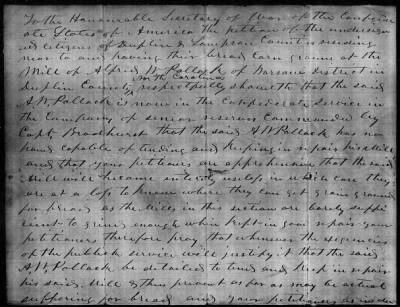 To the Honourable Secretary of War of the Confeder
ate States of America the petition of the undersign
ed citizens of Duplin & Sampson Counties residing
near to and having their bread corn ground at the
Mill of Alfred W Pollock of Warsaw District in
North Carolina
Duplin County respectfully sheweth that the said
A W Pollock is now in the Confederate service in
the Company of senior reserves Commanded by
Capt Broadhurst that the said A W Pollock has no
hand capable of tending and keeping in repair his Mill
and that your petitioners are apprehensive that the said
Mill will become entirely useless in which case they
are at a loss to know where they can get grain ground
for bread as the Mills in this section are barely suffi
cient to grind enough when kept in good repair your
petitioners therefore pray that whenever the exigencies
of the publick service will justify it that the said
A W Pollock be detailed to tend and keep in repair
his said Mill & thus prevent as far as may be actual
suffering for bread and your petitioners as in duty